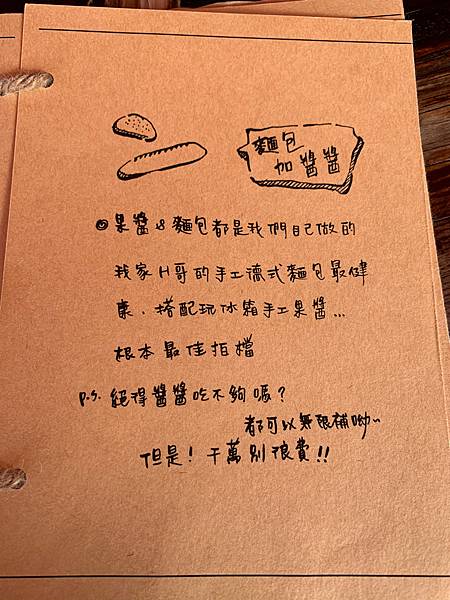 麵包
加醬醬
◎果醬&麵包都是我們自己做的
我家H哥的手工德式麵包最健
康、搭配玩冰箱手工果醬...
根本最佳拍檔
P.S. 絕得醬醬吃不夠嗎?
都可以無限補呦~
但是!千萬別浪費!!